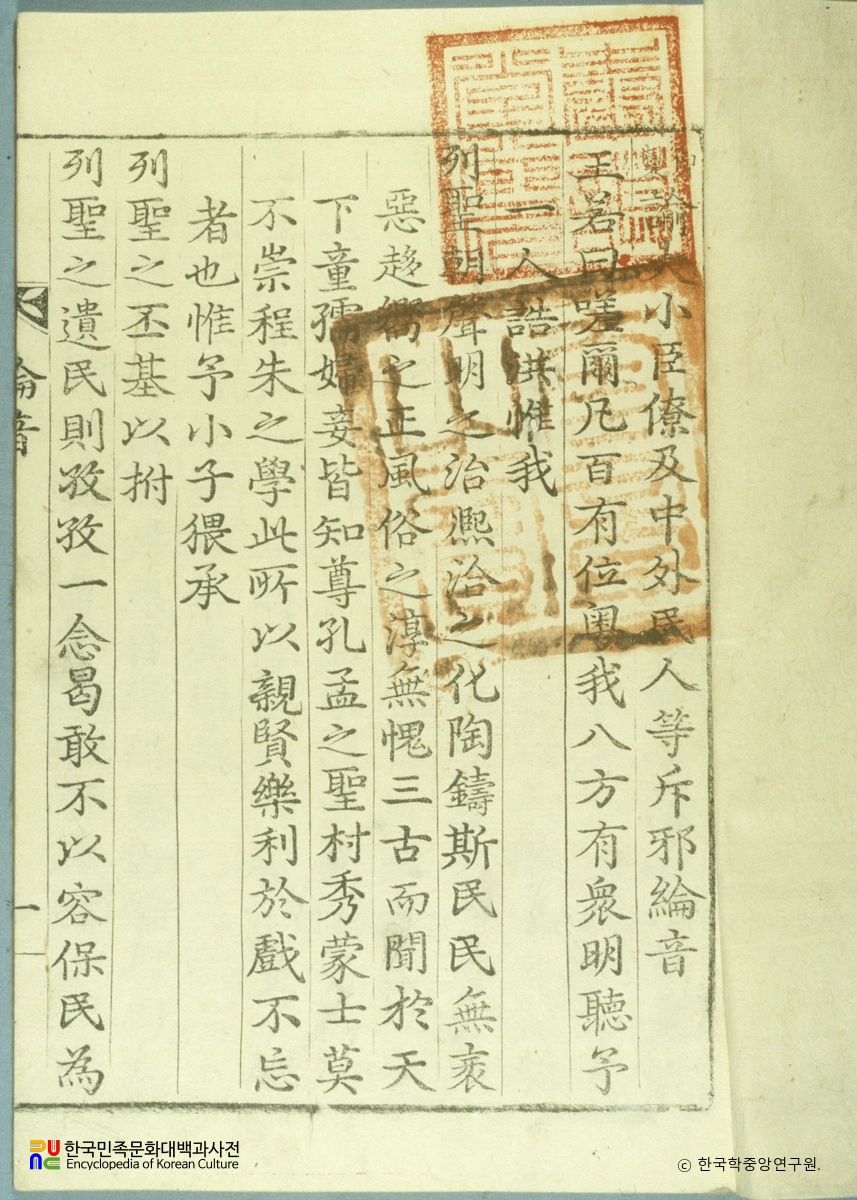 諭大小臣僚及中外民人等斥邪綸音
王若曰嗟爾凡百有位曁我八方有衆明聽予
一人誥洪惟我
列聖朝聲明之治熙洽之化陶鑄斯民民無衺
惡趍嚮之正風俗之淳無愧三古而聞於天
下童孺婦妾皆知尊孔孟之聖村秀蒙士莫
不崇程朱之學此所以親賢樂利於戲不忘
者也惟予小子猥承
列聖之丕基以拊
列聖之遺民則孜孜一念曷敢不以容保民為
綸音
一
한국민족문화대백과사전
Encyclopedia of Korean Culture
© 한국학중앙연구원.